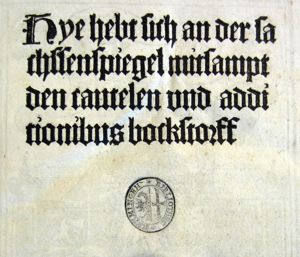 Hye hebt sich an der sa
chssenspiegel mitsampt
den cautelen vnd addi
cionibus bockstorff